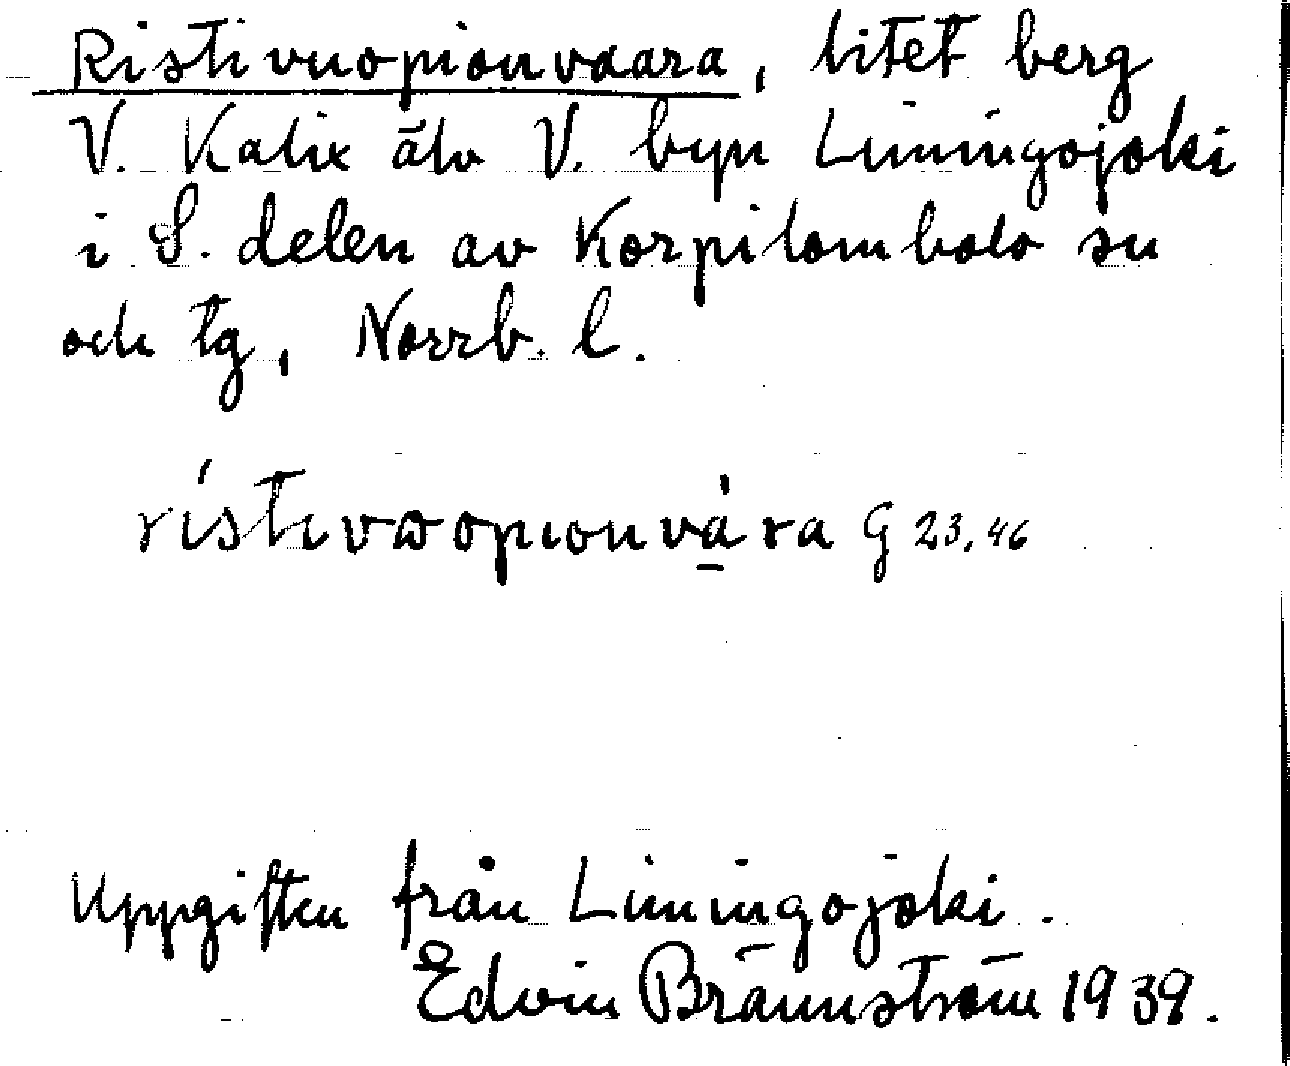 Ristivuopionvaara, litet berg
V. Kalix älv V. byn Liminigojoki
i S. delen av Korpilombolo sn
och tg, Norrb. l.
rístivωopionvá̱ra G 23,46
Uppgiften från Liminigojoki.
Edvin Brännström 1939.